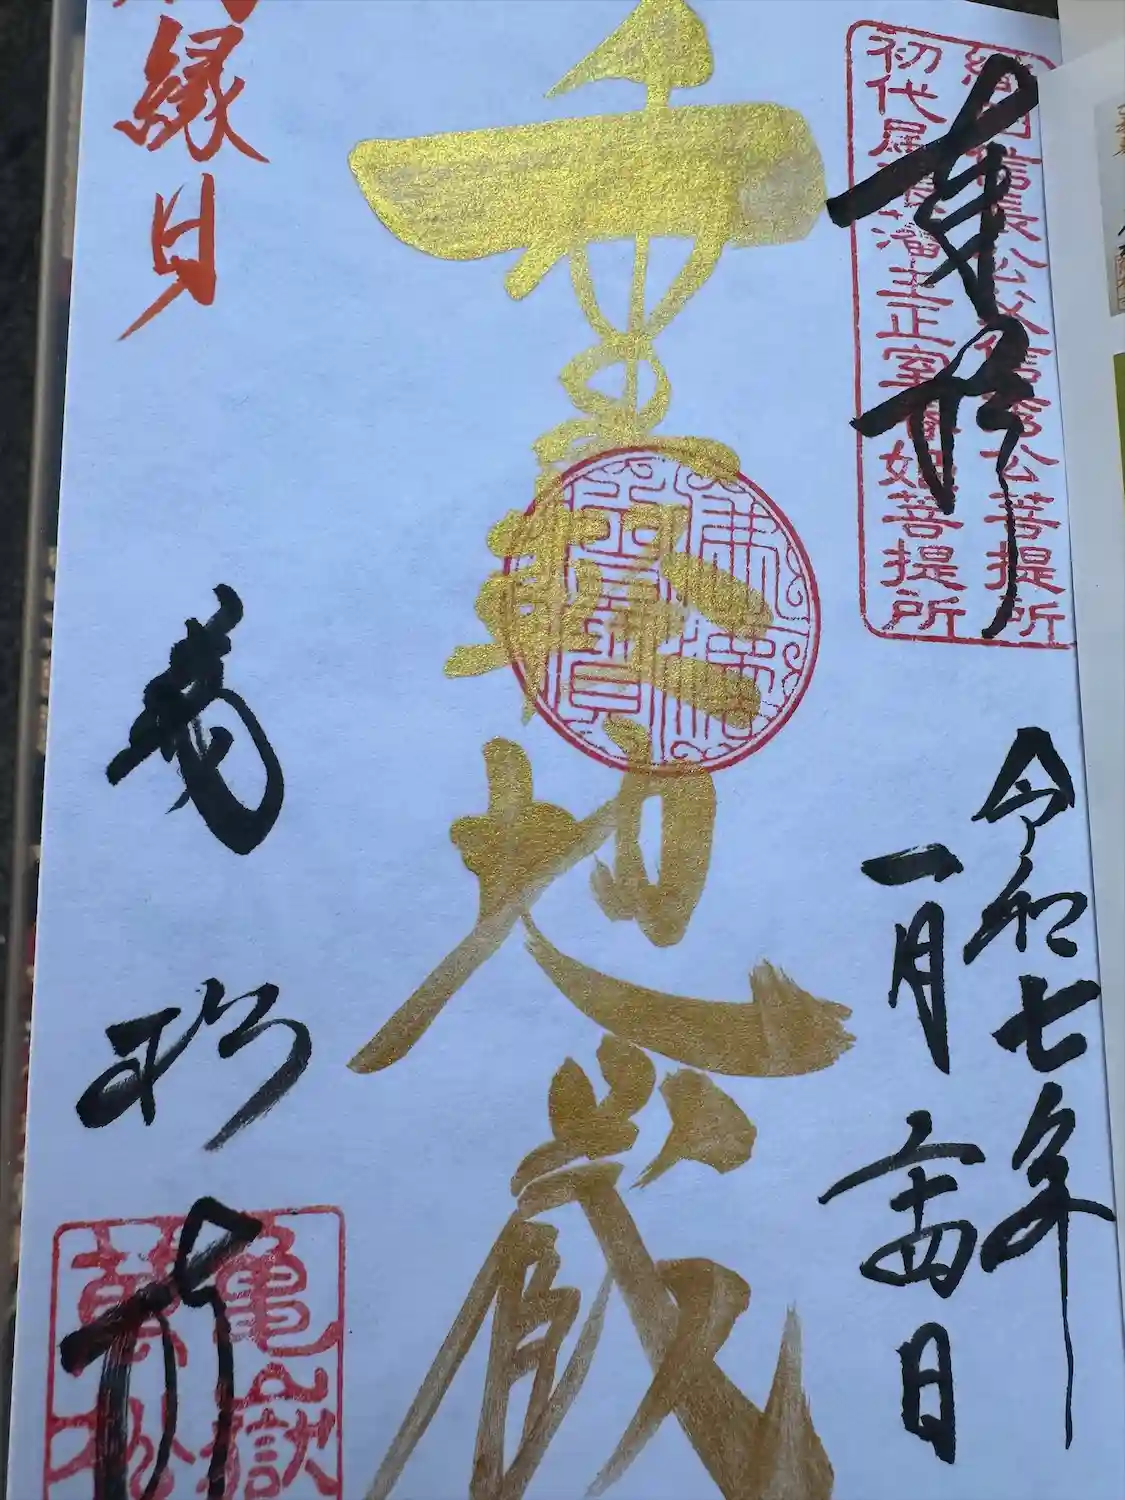 織田信長公父信秀公菩提所
初代尾張藩主正室春姫菩提所
奉拝
令和七年
一月廿四日
身
代
地蔵
佛法僧寶
縁日
萬松寺
亀嶽
萬松